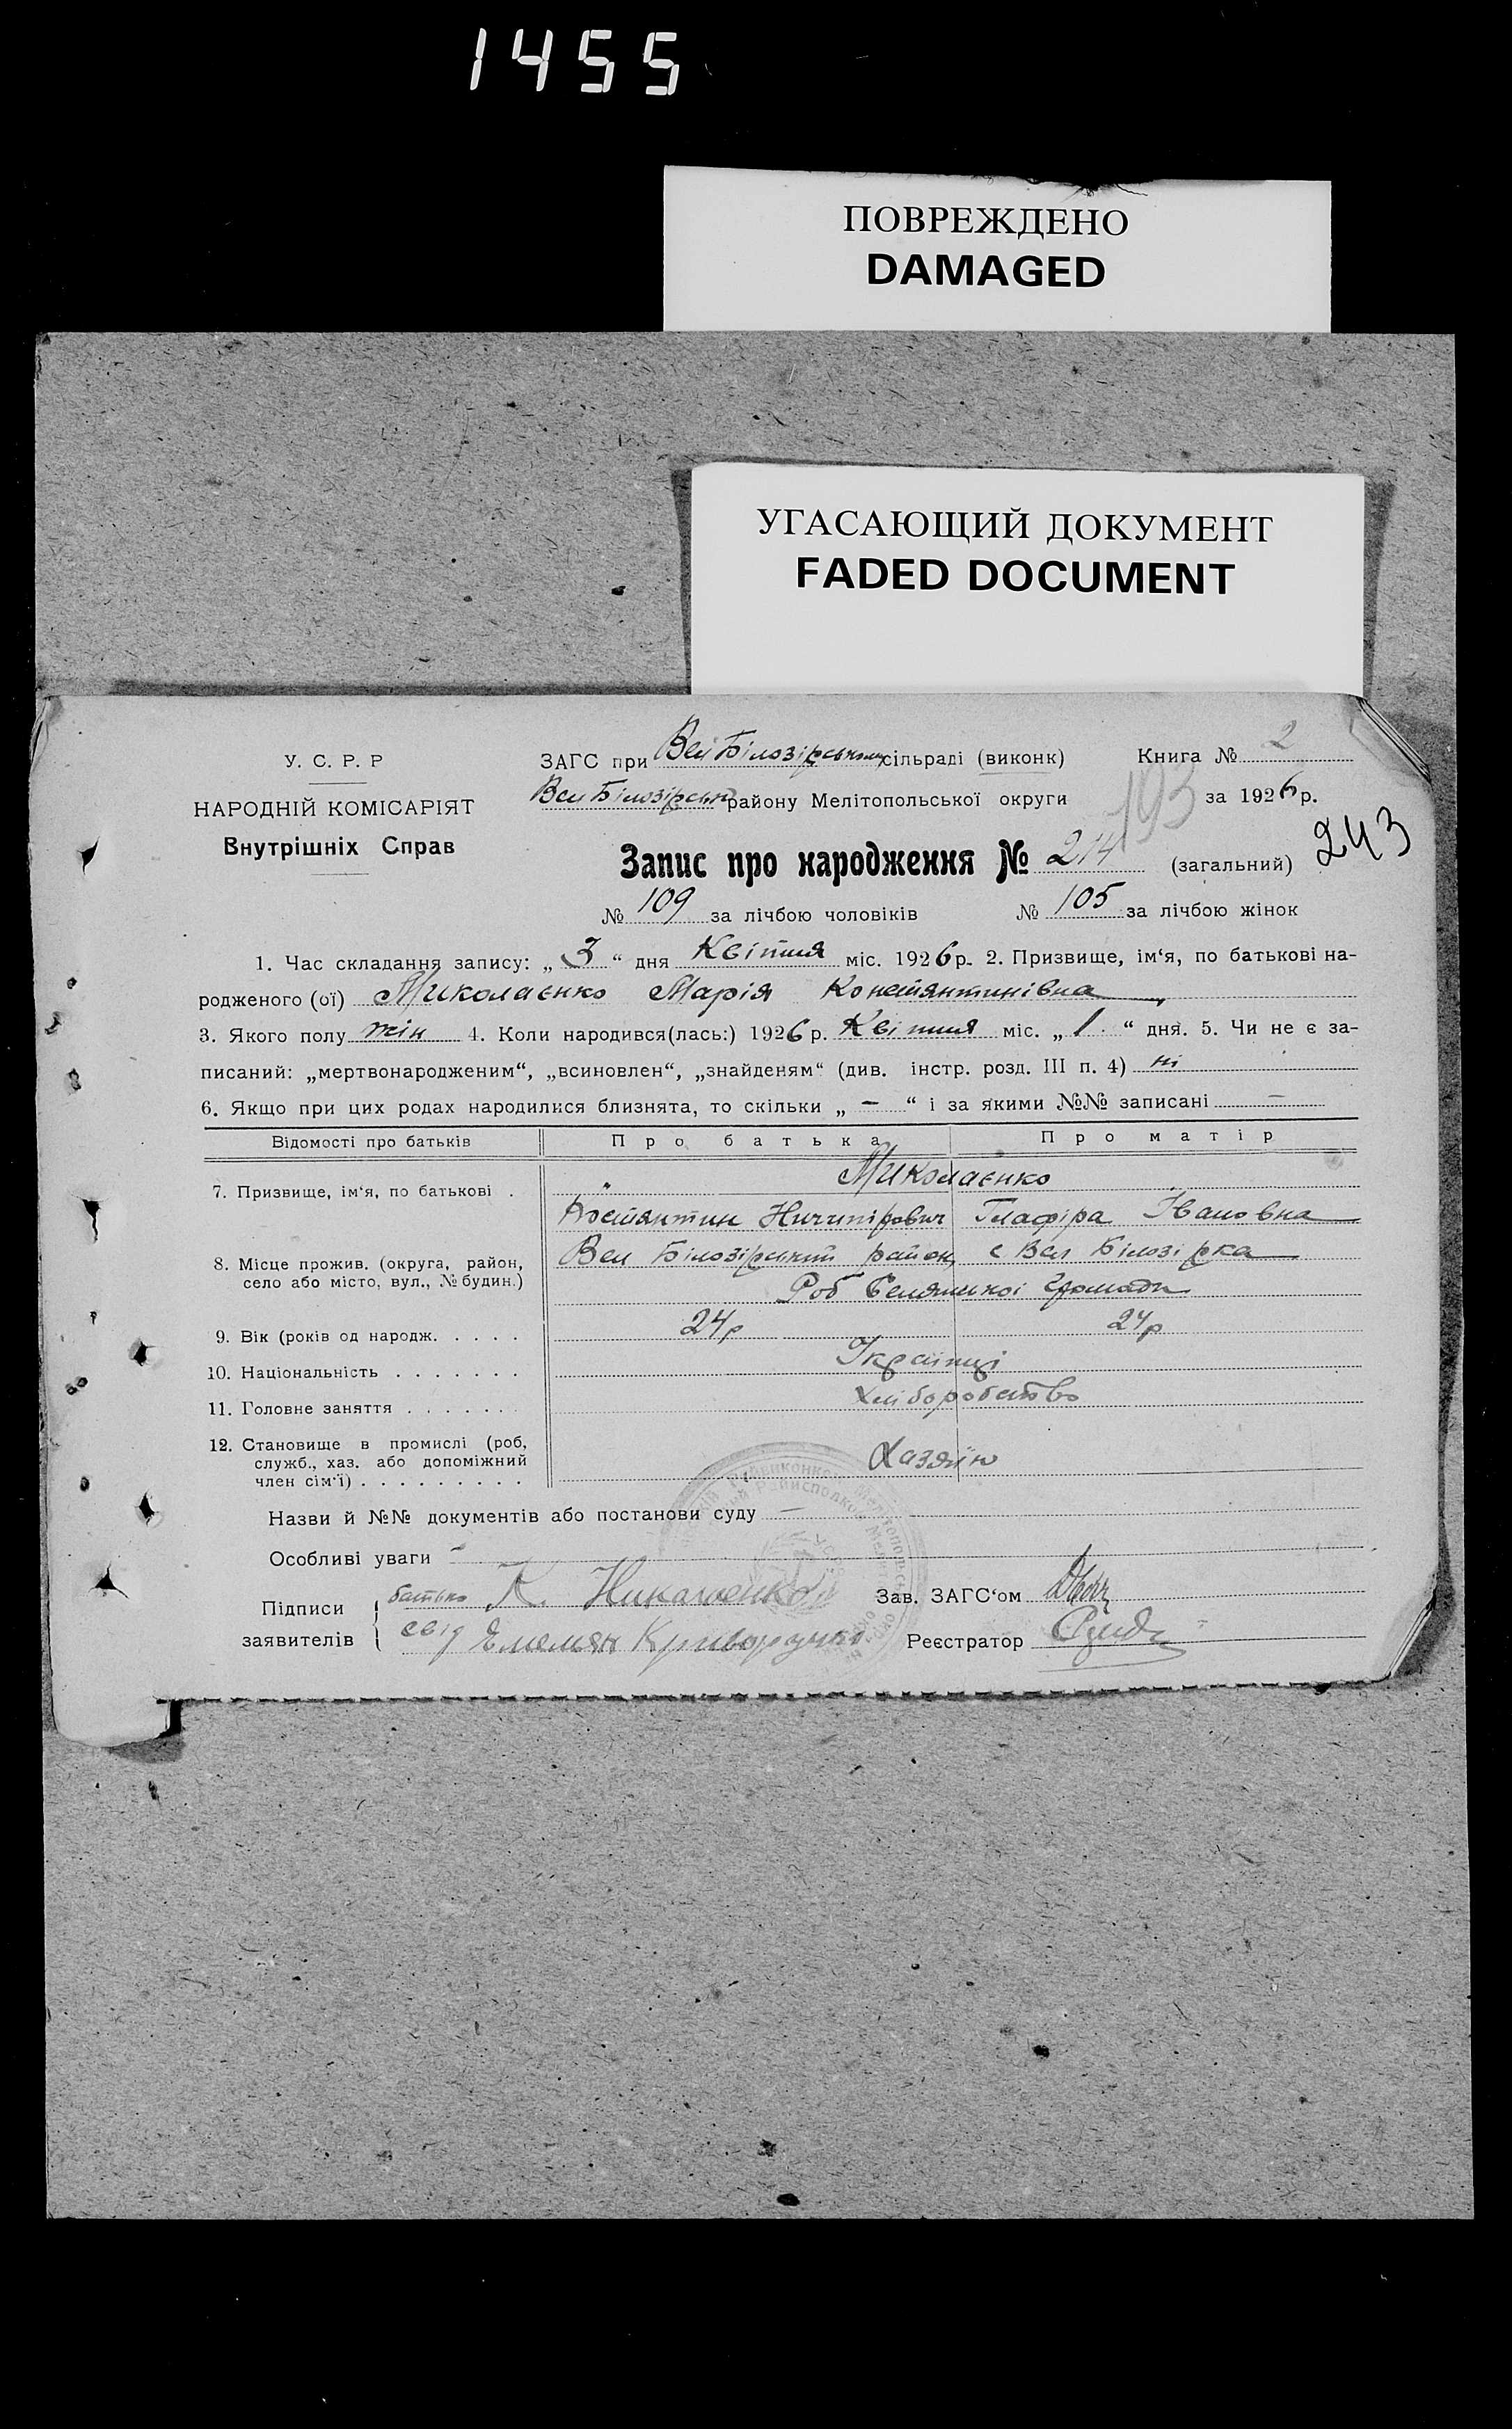 1455
ПОВРЕЖДЕНО
DAMAGED
УГАСАЮЩИЙ ДОКУМЕНТ
FADED DOCUMENT
У. С. Р. Р
НАРОДНІЙ КОМІСАРІЯТ
Внутрішніх Справ
ЗАГС при Вел Білозірському сільраді (виконк) Книга № 2
Вел Білозірськ району Мелітопольської округи за 1926 р.
193
243
Запис про народження № 214 (загальний)
№ 109 за лічбою чоловіків № 105 за лічбою жінок
1. Час складання запису: „ 3 “ дня Квітня міс. 1926 р. 2. Призвище, ім‘я, по батькові на-
родженого (ої) Миколаєнко Марія Констянтинівна
3. Якого полу жін 4. Коли народився(лась:) 1926 р. Квітня міс. „ 1 “ дня. 5. Чи не є за-
писаний: „мертвонародженим“, „всиновлен“, „знайденям“ (див. інстр. розд. III п. 4) ні
6. Якщо при цих родах народилися близнята, то скільки „ — “ і за якими №№ записані —
Відомості про батьків Про батька Про матір
7. Призвище, ім‘я, по батькові . Миколаєнко
Костянтин Ничипірович Глафіра Івановна
8. Місце прожив. (округа, район, село або місто, вул., № будин.) Вел Білозірський район, с Вел Білозірка
Роб Селянької Громади
9. Вік (років од народж. . . . . 24р 24р
10. Національність . . . . . . . Українці
11. Головне заняття . . . . . . . хліборобство
12. Становище в промислі (роб, служб., хаз. або допоміжний член сім‘ї) . . . . . . . . . Хазяїн
Назви й №№ документів або постанови суду —
Особливі уваги —
Підписи заявителів
батько К. Николаенко Зав. ЗАГС‘ом
свід Емельян Криворучко Реєстратор